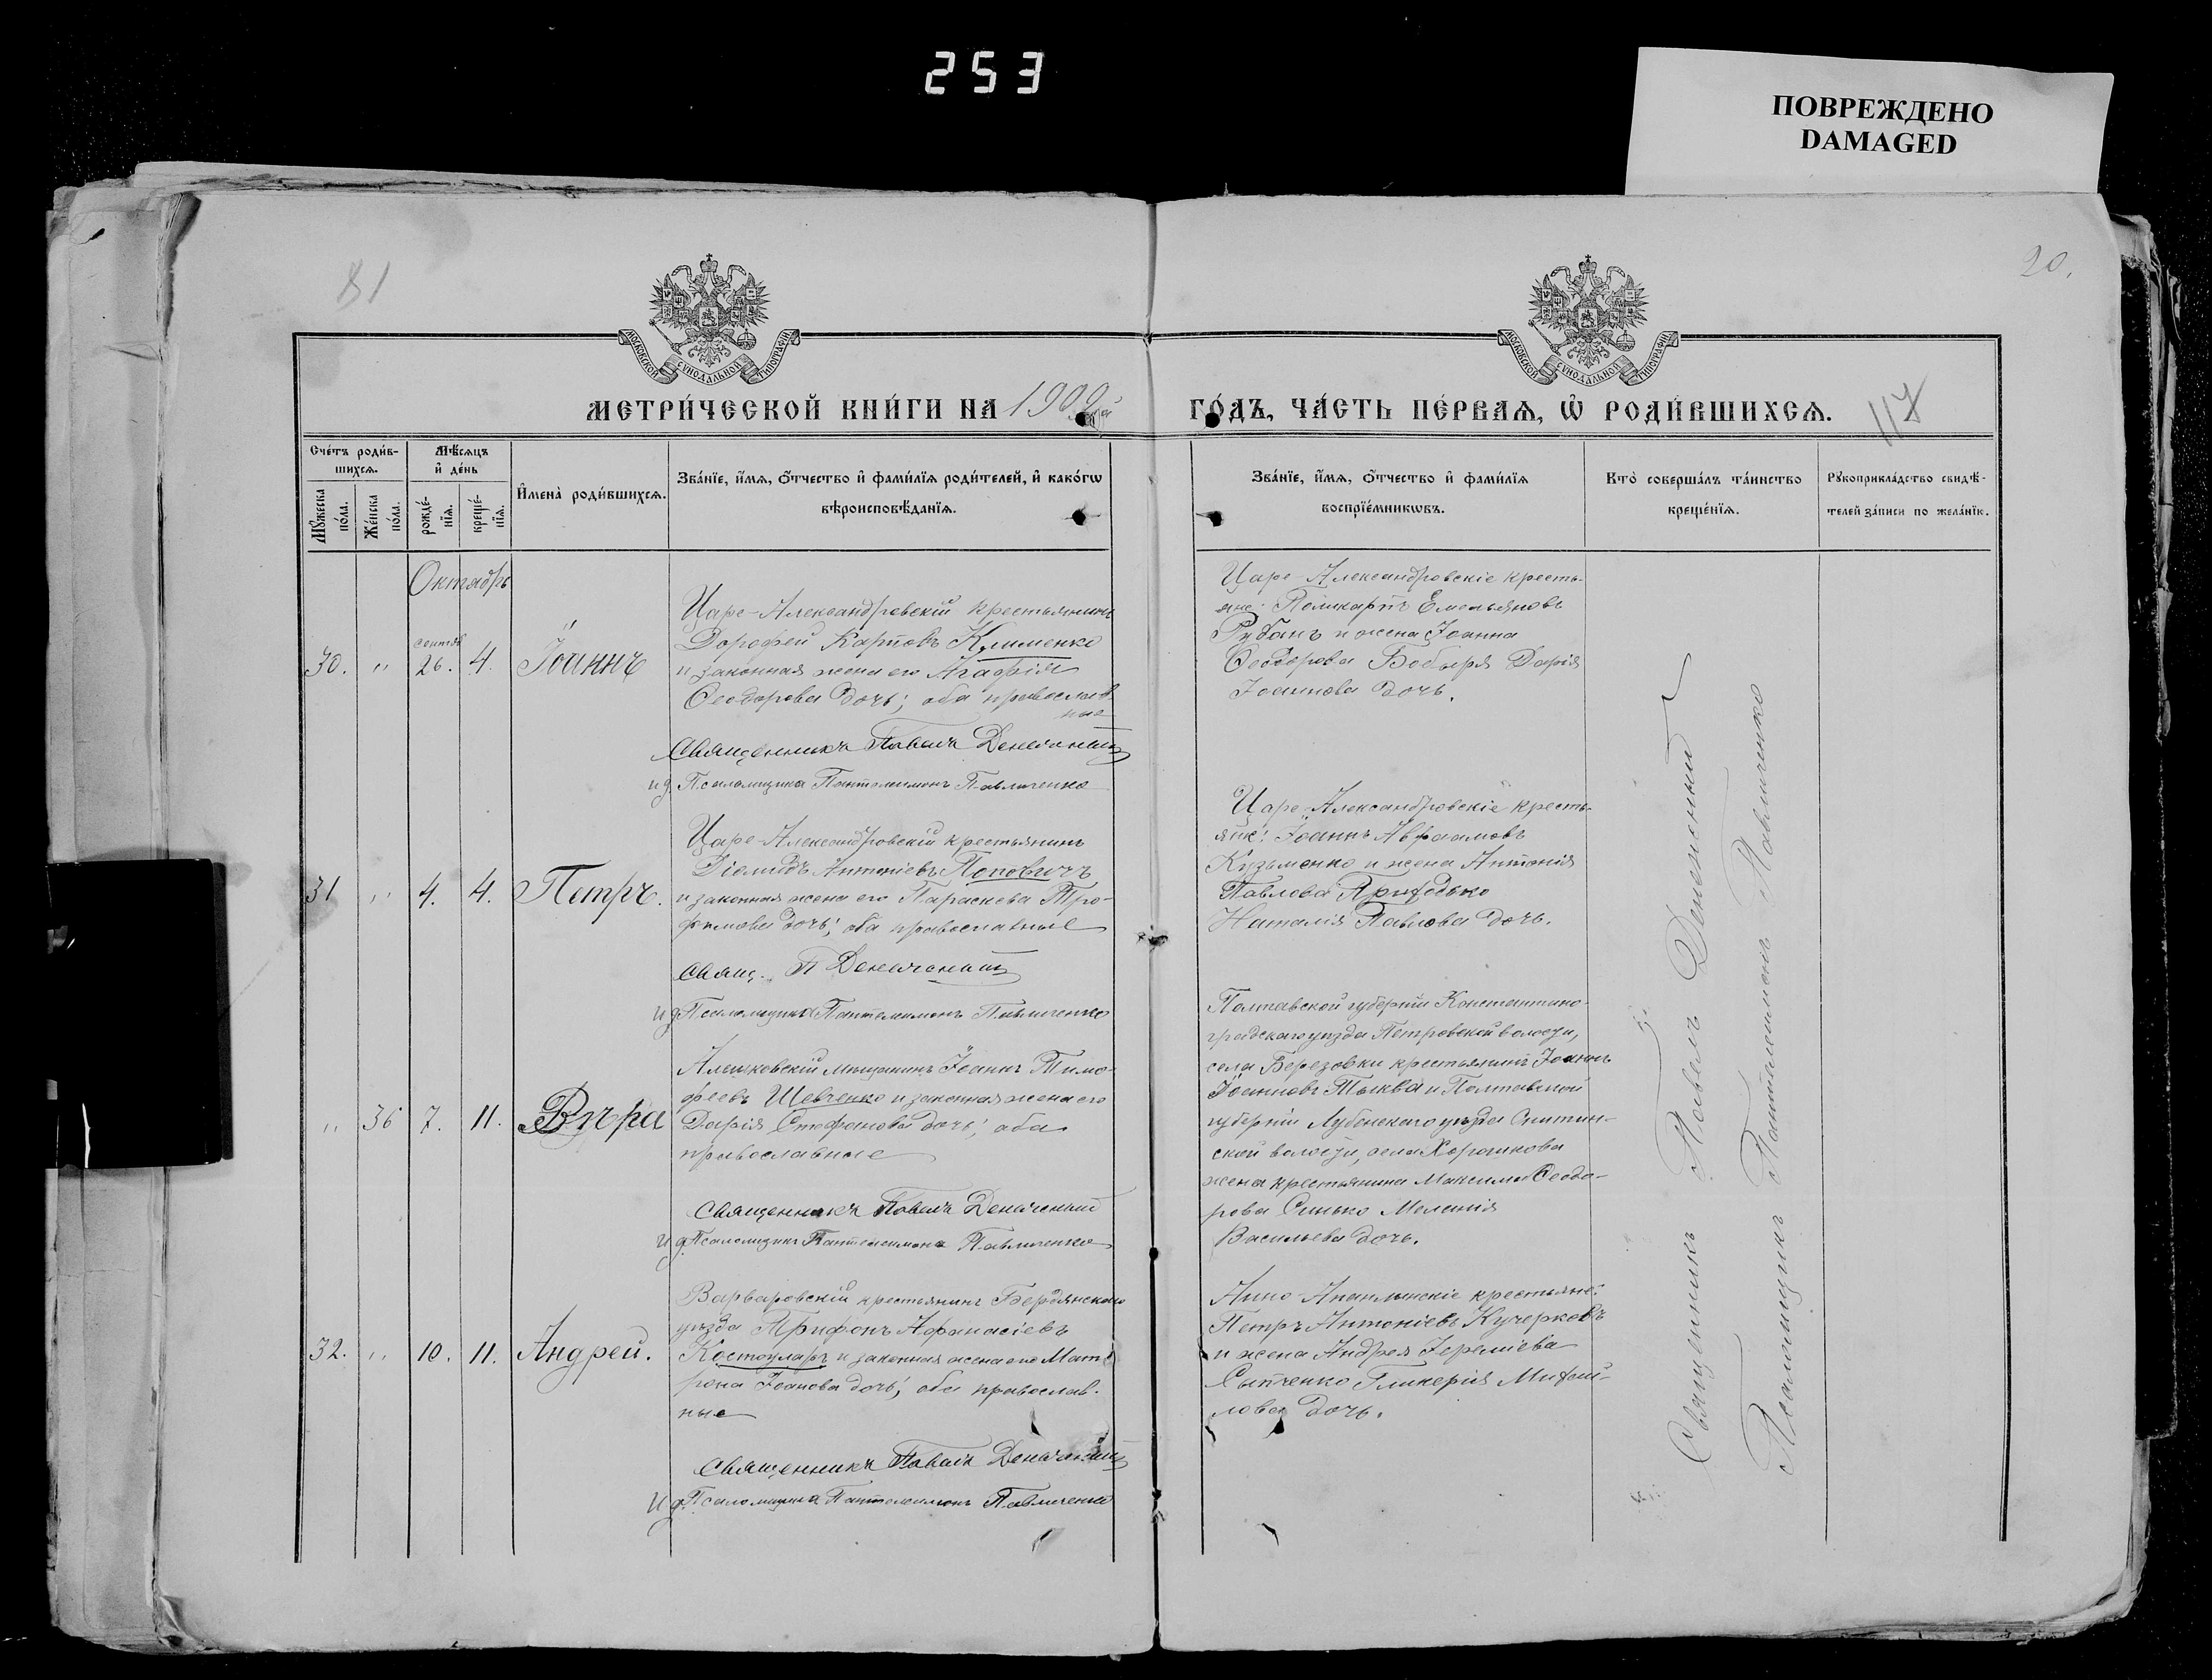 253
ПОВРЕЖДЕНО
DAMAGED
81
20.
МОСКОВСКОЙ СѴНОДАЛЬНОЙ ТИПОГРАФІИ
МОСКОВСКОЙ СѴНОДАЛЬНОЙ ТИПОГРАФІИ
МЕТРИ́ЧЕСКОЙ КНИ́ГИ НА 1909
ГО́ДЪ, ЧА́СТЬ ПЕ́РВАѦ, Ѡ҆ РОДИ́ВШИХСѦ.
117
Сче́тъ роди́в-
шихсѧ.
Мꙋ́жеска по́ла.
Же́нска по́ла.
Мѣ́сѧцъ
и҆ де́нь
рожде́-
нїѧ.
креще́-
нїѧ.
И҆мена̀ роди́вшихсѧ.
Зва́нїе, и҆́мѧ, ѻ҆́тчество и҆ фами́лїѧ роди́телей, и҆ како́гѡ
вѣроисповѣ́данїѧ.
Зва́нїе, и҆́мѧ, ѻ҆́тчество и҆ фами́лїѧ
воспрїе́мникѡвъ.
Кто̀ соверша́лъ та́инство
креще́нїѧ.
Рꙋкоприкла́дство свидѣ́-
телей за́писи по жела́нїю.
Октябрь
30. " сентяб 26. 4. Іоаннъ
Царе-Александровскій крестьянинъ
Дорофей Карповъ Клименко
и законная жена его Агафія
Ѳеодорова дочь; оба православ
ные
Священникъ Павелъ
и д. Псаломщика Пантелеимонъ Павличенко
Царе-Александровскіе кресть-
яне: Поликарпъ Емельяновъ
Рубанъ и жена Іоанна
Ѳеодорова Бобыря Дарія
Іоаннова дочь.
31 " 4. 4. Петръ.
Царе-Александровскій крестьянинъ
Діомидъ Антоніевъ Поповичъ
и законная жена его Параскева Тро-
фимова дочь; оба православные
Свящ. П
и д Псаломщика Пантелеимонъ Павличенко
Царе-Александровскіе кресть-
яне: Іоаннъ Авраамовъ
Кузьменко и жена Антонія
Павлова Приходько
Наталія Павлова дочь.
" 36 7. 11. Вѣра
Алешковскій мѣщанинъ Іоаннъ Тимо-
феевъ Шевченко и законная жена его
Дарія Стефанова дочь; оба
православные
Священникъ Павелъ
И д. Псаломщика Пантелеимонъ Павличенко
Полтавской губерніи Константино-
градскаго уѣзда Петровской волости,
села Березовки крестьянинъ Іоаннъ
Іоанновъ Тыква и Полтавской
губерніи Лубенскаго уѣзда Снитин-
ской волости, села
жена крестьянина Максима Ѳеодо-
рова Синько Меланія
Васильева дочь.
32. " 10. 11. Андрей.
Варваровскій крестьянинъ Бердянскаго
уѣзда Трифонъ Афанасіевъ
и законная жена его Мат-
рона Іоанова дочь; оба православ-
ные
Священникъ Павелъ
И д. Псаломщика Пантелеимонъ Павличенко
крестьяне:
Петръ Антоніевъ Кучерковъ
и жена Андрея Іереміева
Сытченко Гликерія Михаи-
лова дочь.
Священникъ Павелъ
Псаломщикъ Пантелеимонъ Павличенко